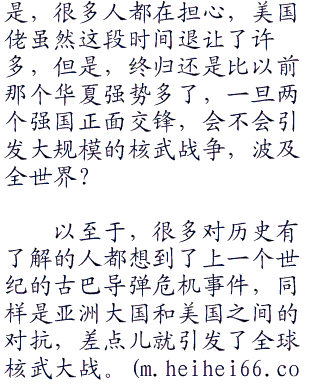 是，很多人都在担心，美国
佬虽然这段时间退让了许
多，但是，终归还是比以前
那个华夏强势多了，一旦两
个强国正面交锋，会不会引
发大规模的核武战争，波及
全世界？
以至于，很多对历史有
了解的人都想到了上一个世
纪的古巴导弹危机事件，同
样是亚洲大国和美国之间的
对抗，差点儿就引发了全球
核武大战。(m.heihei66.co